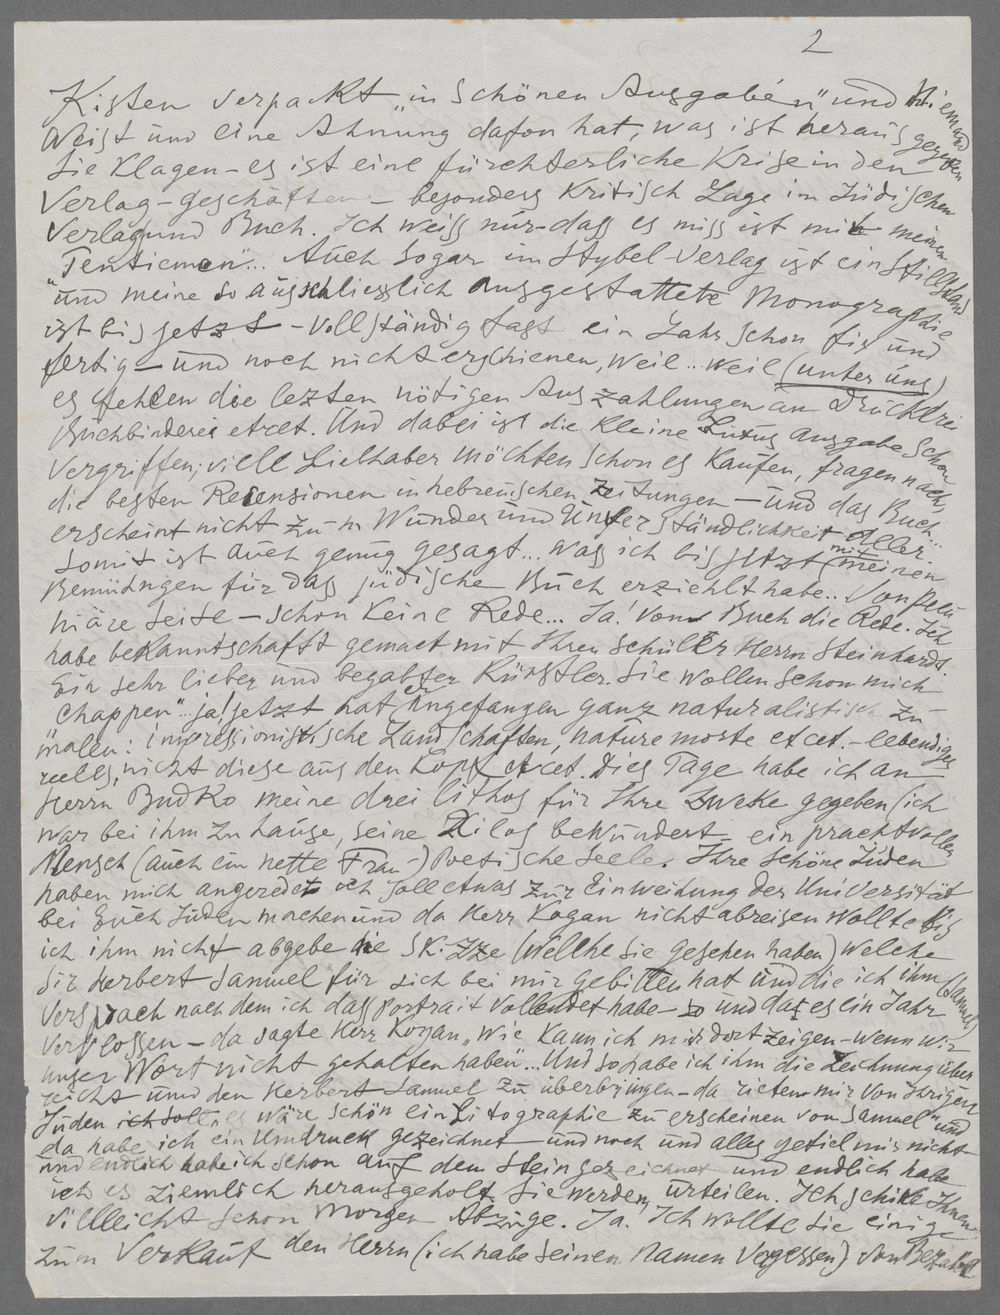 2
Kisten verpackt „in schönen Ausgaben" und niemand
weist und eine Ahnung dafon hat, was ist herausgegeben
Sie Klagen – es ist eine fürchterliche Krise in den
Verlag-geschäften – besonders Kritisch Lage im Jüdischen
Verlag und Buch. Ich weiss nur – dass es miss ist mit meinen
... Auch sogar im Stybel-Verlag ist ein Stillstand
und meine so ausschliesslich ausgestattete Monographie
ist bis jetzt – vollständig fast ein Jahr schon fix und
fertig – und noch nicht erschienen, weil .. weil (unter uns)
es fehlen die lezten nötigen Auszahlungen an Drückdrei
Buchbinderei etcet. Und dabei ist die Kleine Luxus Ausgabe schon
vergriffen; viell Liebhaber möchten schon es Kaufen, fragen nach,
die besten Recensionen in hebreuischen Zeitungen – und das Buch...
erscheint nicht zum Wunder und Unferständlichkeit Aller
Somit ist auch genug gesagt... was ich bis jetzt mit meinen
Bemüdngen für das jüdische Buch erziehlt habe.. Von peku-
niäre Seite – schon Keine Rede... Ja! Vom Buch die Rede. Ich
habe bekanntschafft gemact mit Ihren Schüler Herrn Steinhardt.
Ein sehr lieber und begabter Künstler. Sie wollen schon mich
„chappen"... ja! jetzt hat er angefangen ganz naturalistisch zu
malen: impressionistische Landschaften, nature morte etcet. – lebendiges
reells, nicht diese aus den Kopf etcet. Dies Tage habe ich an
Herrn Budko meine drei lithos für Ihre Zweke gegeben (ich
war bei ihm zu hause, seine Xilos bewundert – ein prachtvoller
Mensch (auch ein nette Frau –) Poetische Seele. Ihre schöne Juden
haben mich angeredet ich soll etwas zur Einweihung der Universität
bei Euch Juden machen und da Herr Kogan nicht abreisen wollte bis
ich ihm nicht abgebe die Skizze (wellhe Sie gesehen haben) welche
Sir Herbert Samuel für sich bei mir gebitten hat und die ich ihm (Samuel)
versprach nach dem ich das portrait vollendet habe – und dat es ein Jahr
verflossen – da sagte Herr Kogan „Wie Kann ich mir dort zeigen – wenn wir
unser Wort nicht gehalten haben"... Und so habe ich ihm die Zeichnung über
reicht und den Herbert Samuel zu überbringen – da rieten mir von Ihrigen
Juden ich soll, es wäre schön ein Litographie zu erscheinen von Samuel und
da habe ich ein Umdruck gezeichnet – und noch und alles gefiel mir nicht
und endlich habe ich schon auf dem Stein gezeichnet und endlich habe
ich es ziemlich herausgeholt. Sie werden urteilen. Ich schike Ihnen
villleicht schon Morgen Abzüge. Ja. Ich wollte Sie einige
zum Verkauf den Herrn (ich habe seinen Namen vergessen) von Bezalel